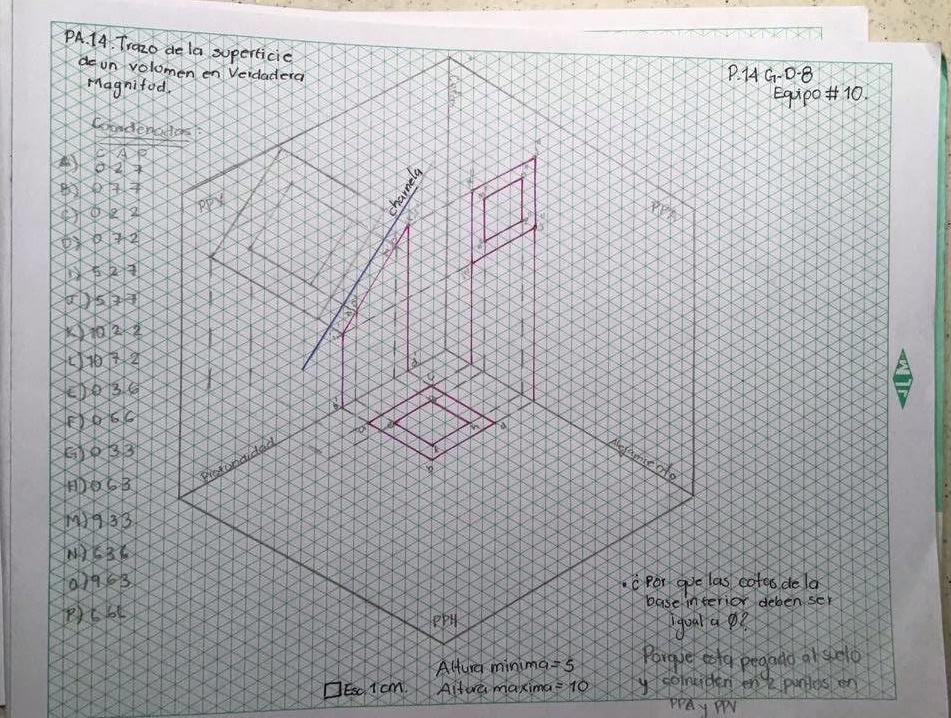 PA.14. Trazo de la superficie
de un volumen en Verdadera
Magnitud.
P.14 G-D-8
Equipo # 10.
Coordenadas:
C A P
A) 0 2 7
B) 0 7 7
C) 0 2 2
D) 0 7 2
I) 5 2 7
J) 5 7 7
K) 10 2 2
L) 10 7 2
E) 0 3 6
F) 0 6 6
G) 0 3 3
H) 0 6 3
M) 9 3 3
N) 6 3 6
O) 9 6 3
P) 6 6 6
PPV
charnela
Cota
PPA
Profundidad
Alejamiento
PPH
JLM
• ¿ Por que las cotas de la
base interior deben ser
igual a Ø?
Porque esta pegado al suelo
y coinciden en 2 puntos en
PPA y PPV
Esc. 1 cm.
Altura minima = 5
Altura maxima = 10